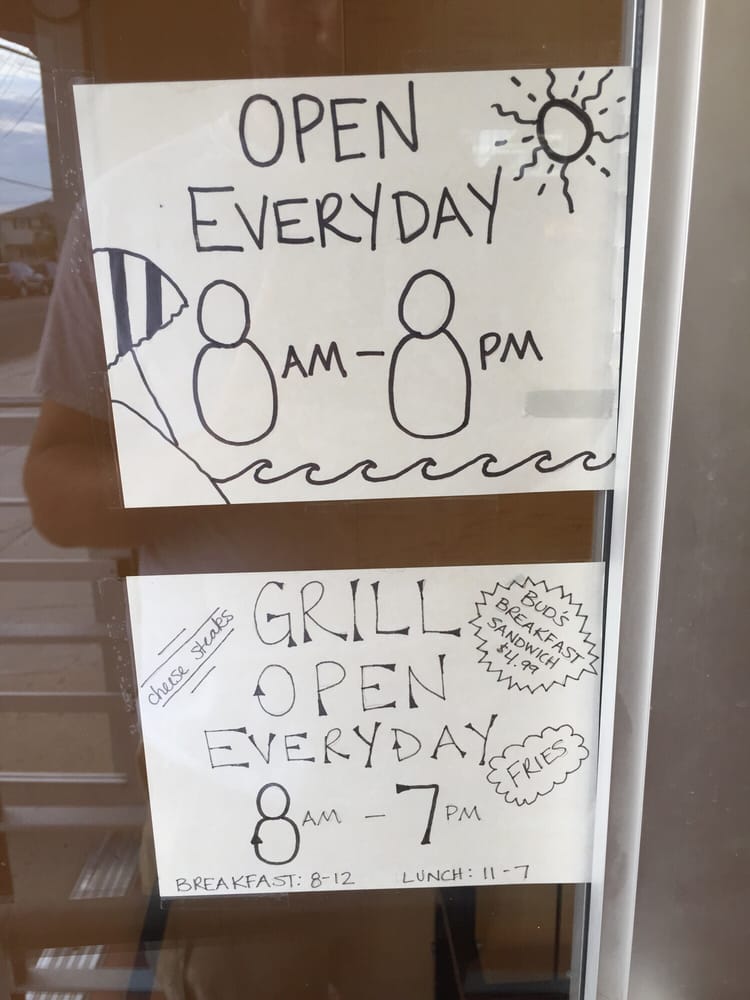 OPEN
EVERYDAY
8AM-8PM
cheese steaks
GRILL
OPEN
EVERYDAY
8AM - 7PM
BUD'S
BREAKFAST
SANDWICH
$4.99
FRIES
BREAKFAST: 8-12 LUNCH: 11-7